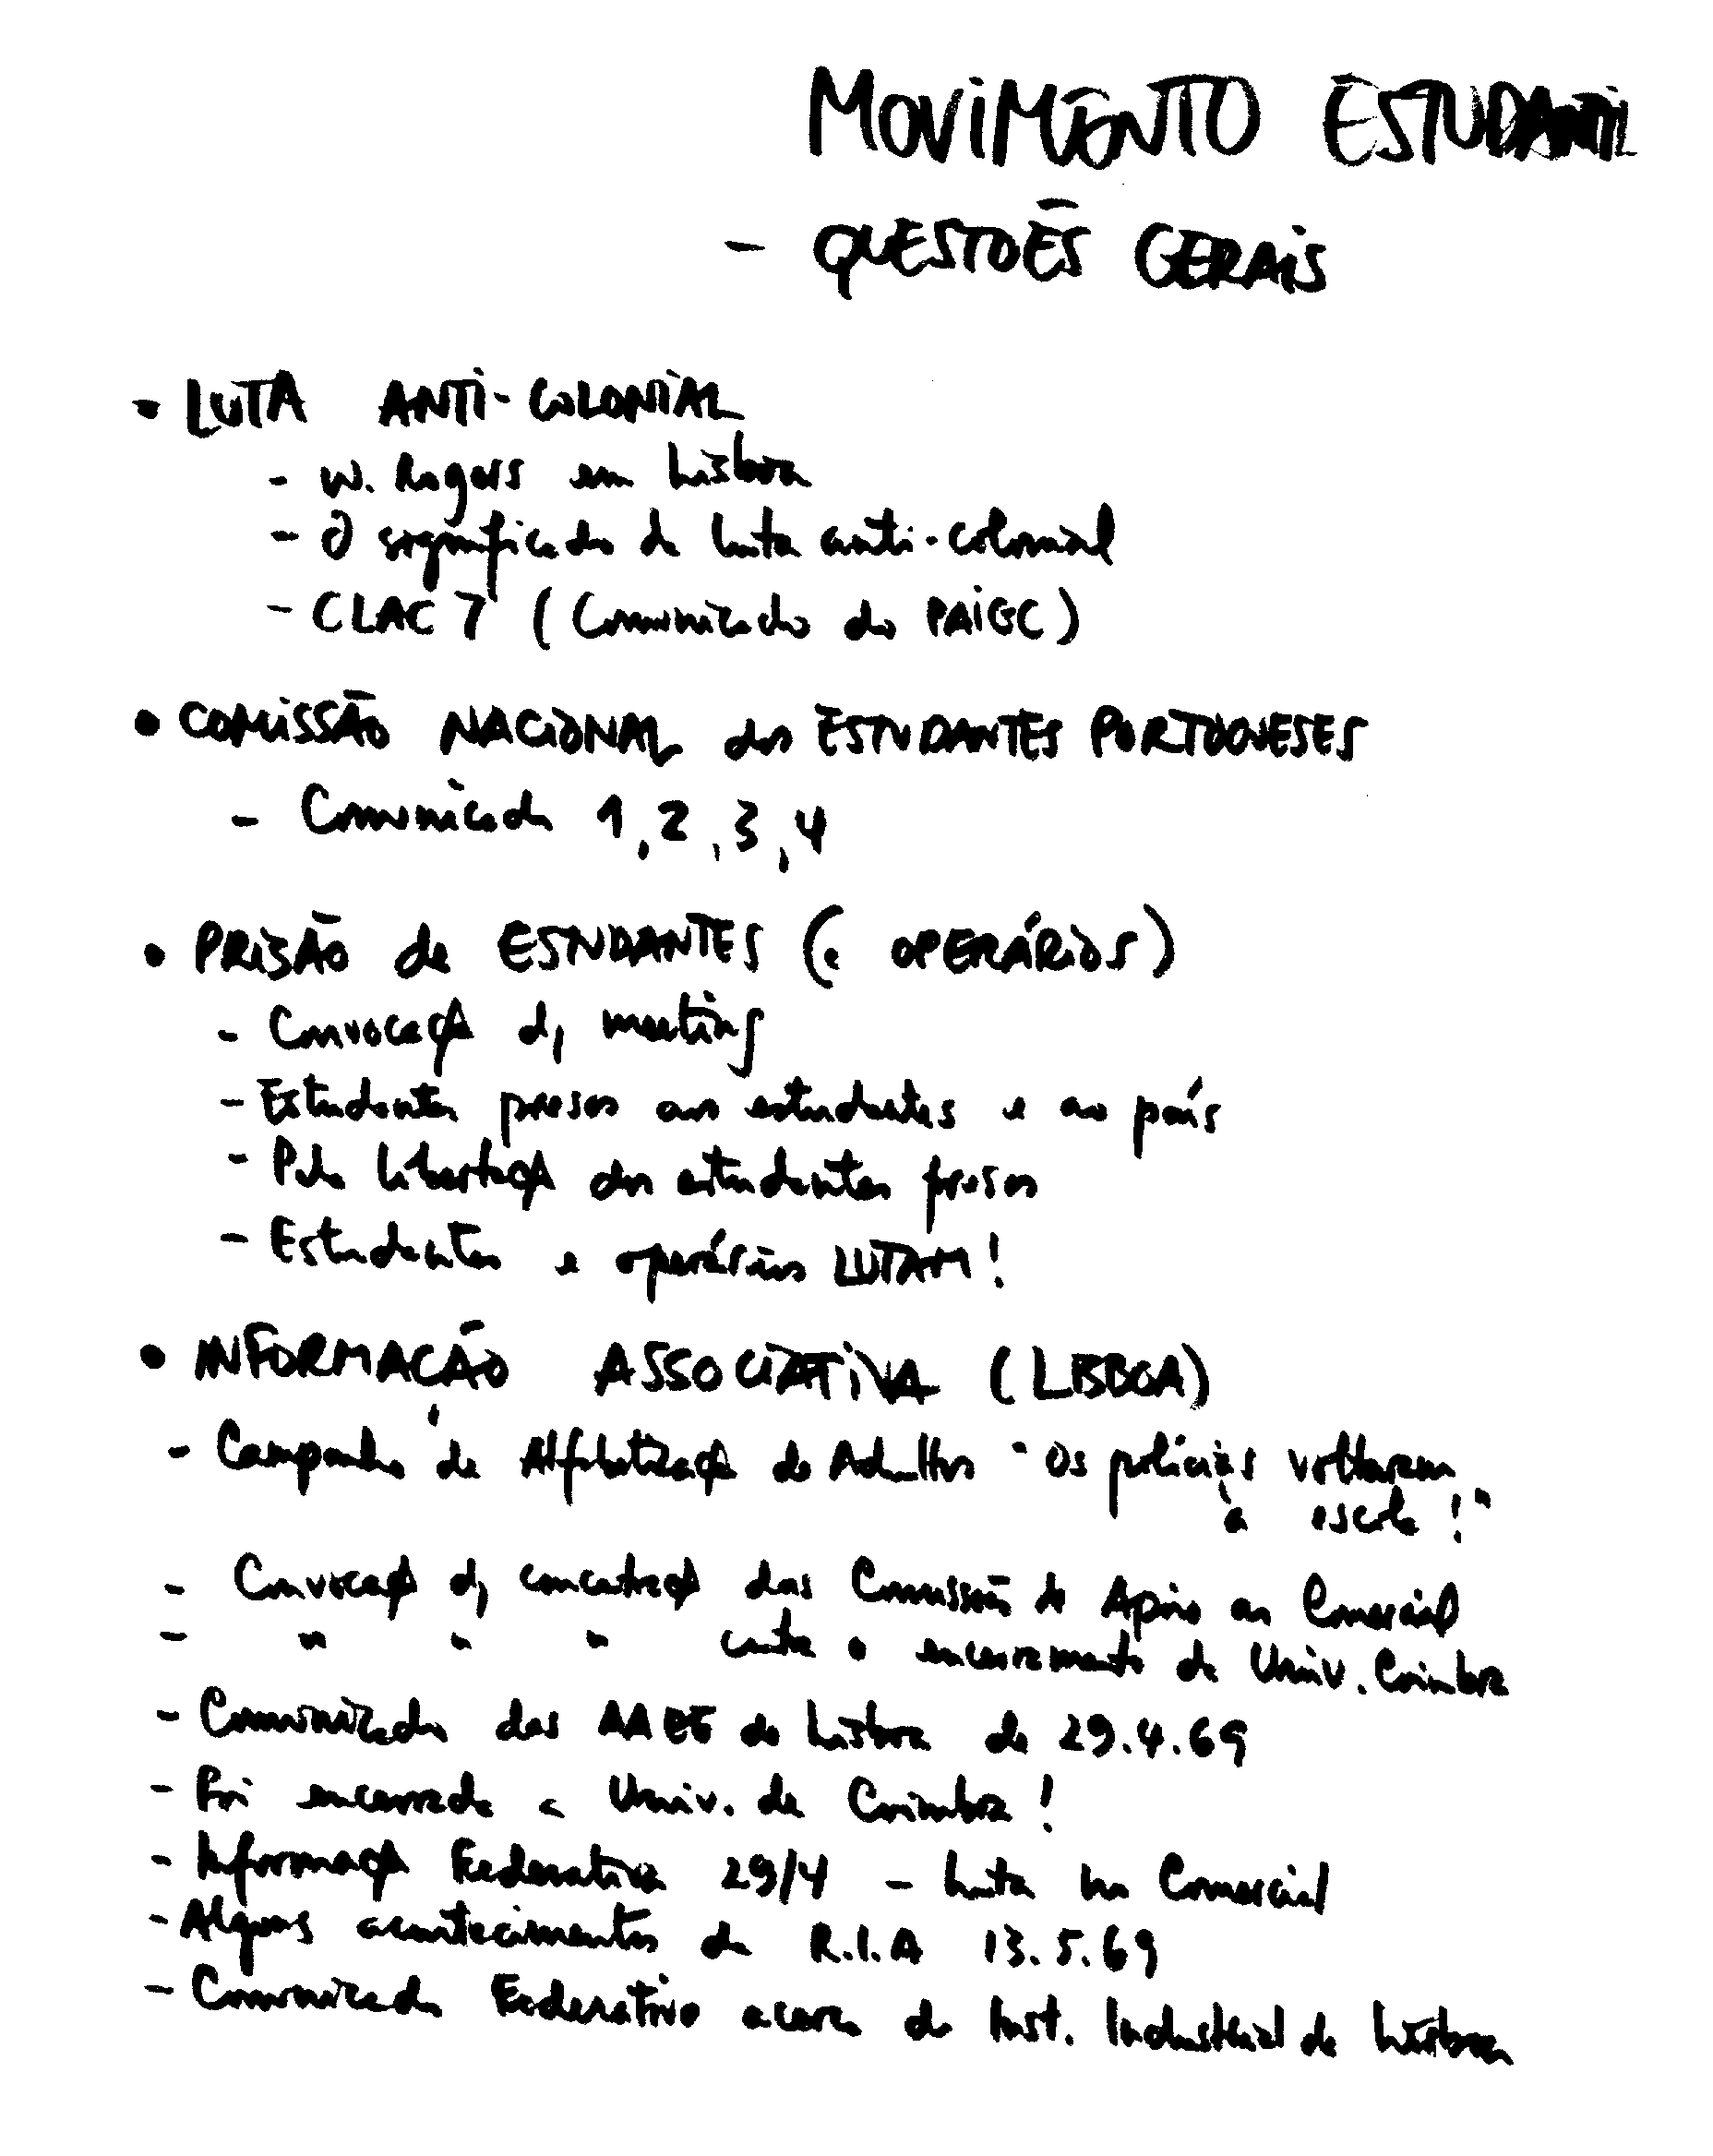 MOVIMENTO ESTUDANTIL
- QUESTÕES GERAIS
- LUTA ANTI-COLONIAL
- W. Rogers em Lisboa
- O significado da luta anti-colonial
- CLAC 7 (Comunicado do PAIGC)
• COMISSÃO NACIONAL dos ESTUDANTES PORTUGUESES
- Comunicado 1, 2, 3, 4
• PRISÃO de ESTUDANTES (e OPERÁRIOS)
- Convocaçã d, meeting
- Estudantes presos aos estudantes e ao país
- Pela libertaçã dos estudantes presos
- Estudantes e operários LUTAM!
• INFORMAÇÃO ASSOCIATIVA (LISBOA)
- Campanha de Alfabetizaçã de Adultos "Os polícias voltaram
à escola!"
- Convocaçã d, concentraçã das Comissões de Apoio ao Comercial
- " " " contra o encerramento da Univ. Coimbra
- Comunicado das AAEE de Lisboa de 29.4.69
- Foi encerrada a Univ. de Coimbra!
- Informaçã Federativa 29/4 - Luta no Comercial
- Alguns acontecimentos da R.I.A 13.5.69
- Comunicado Federativo acerca do Inst. Industrial de Lisboa